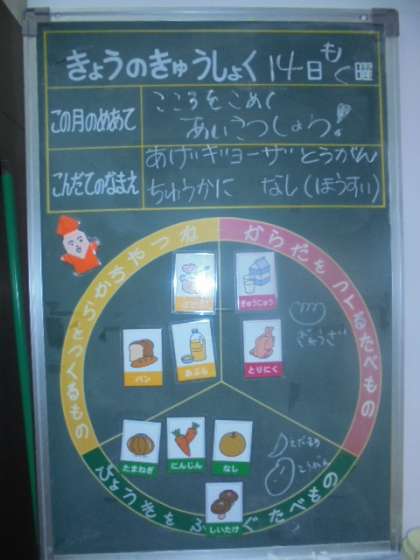 きょうのきゅうしょく 14日 もく曜
この月のめあて
こころをこめて
あいさつしよう!
こんだてのなまえ
あげギョーザ とうがん
ちゅうかに なし(ほうすい)
ちからやねつをつくるもの
からだをつくるたべもの
ぎゅうにゅう
ぎょうざ
パン
あぶら
とりにく
たまねぎ
にんじん
なし
えだまめ
とうがん
しいたけ
びょうきをふせぐたべもの